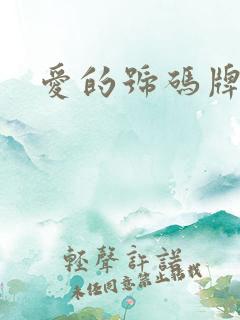 愛的號碼牌
輕聲許諾
未經同意禁止轉載